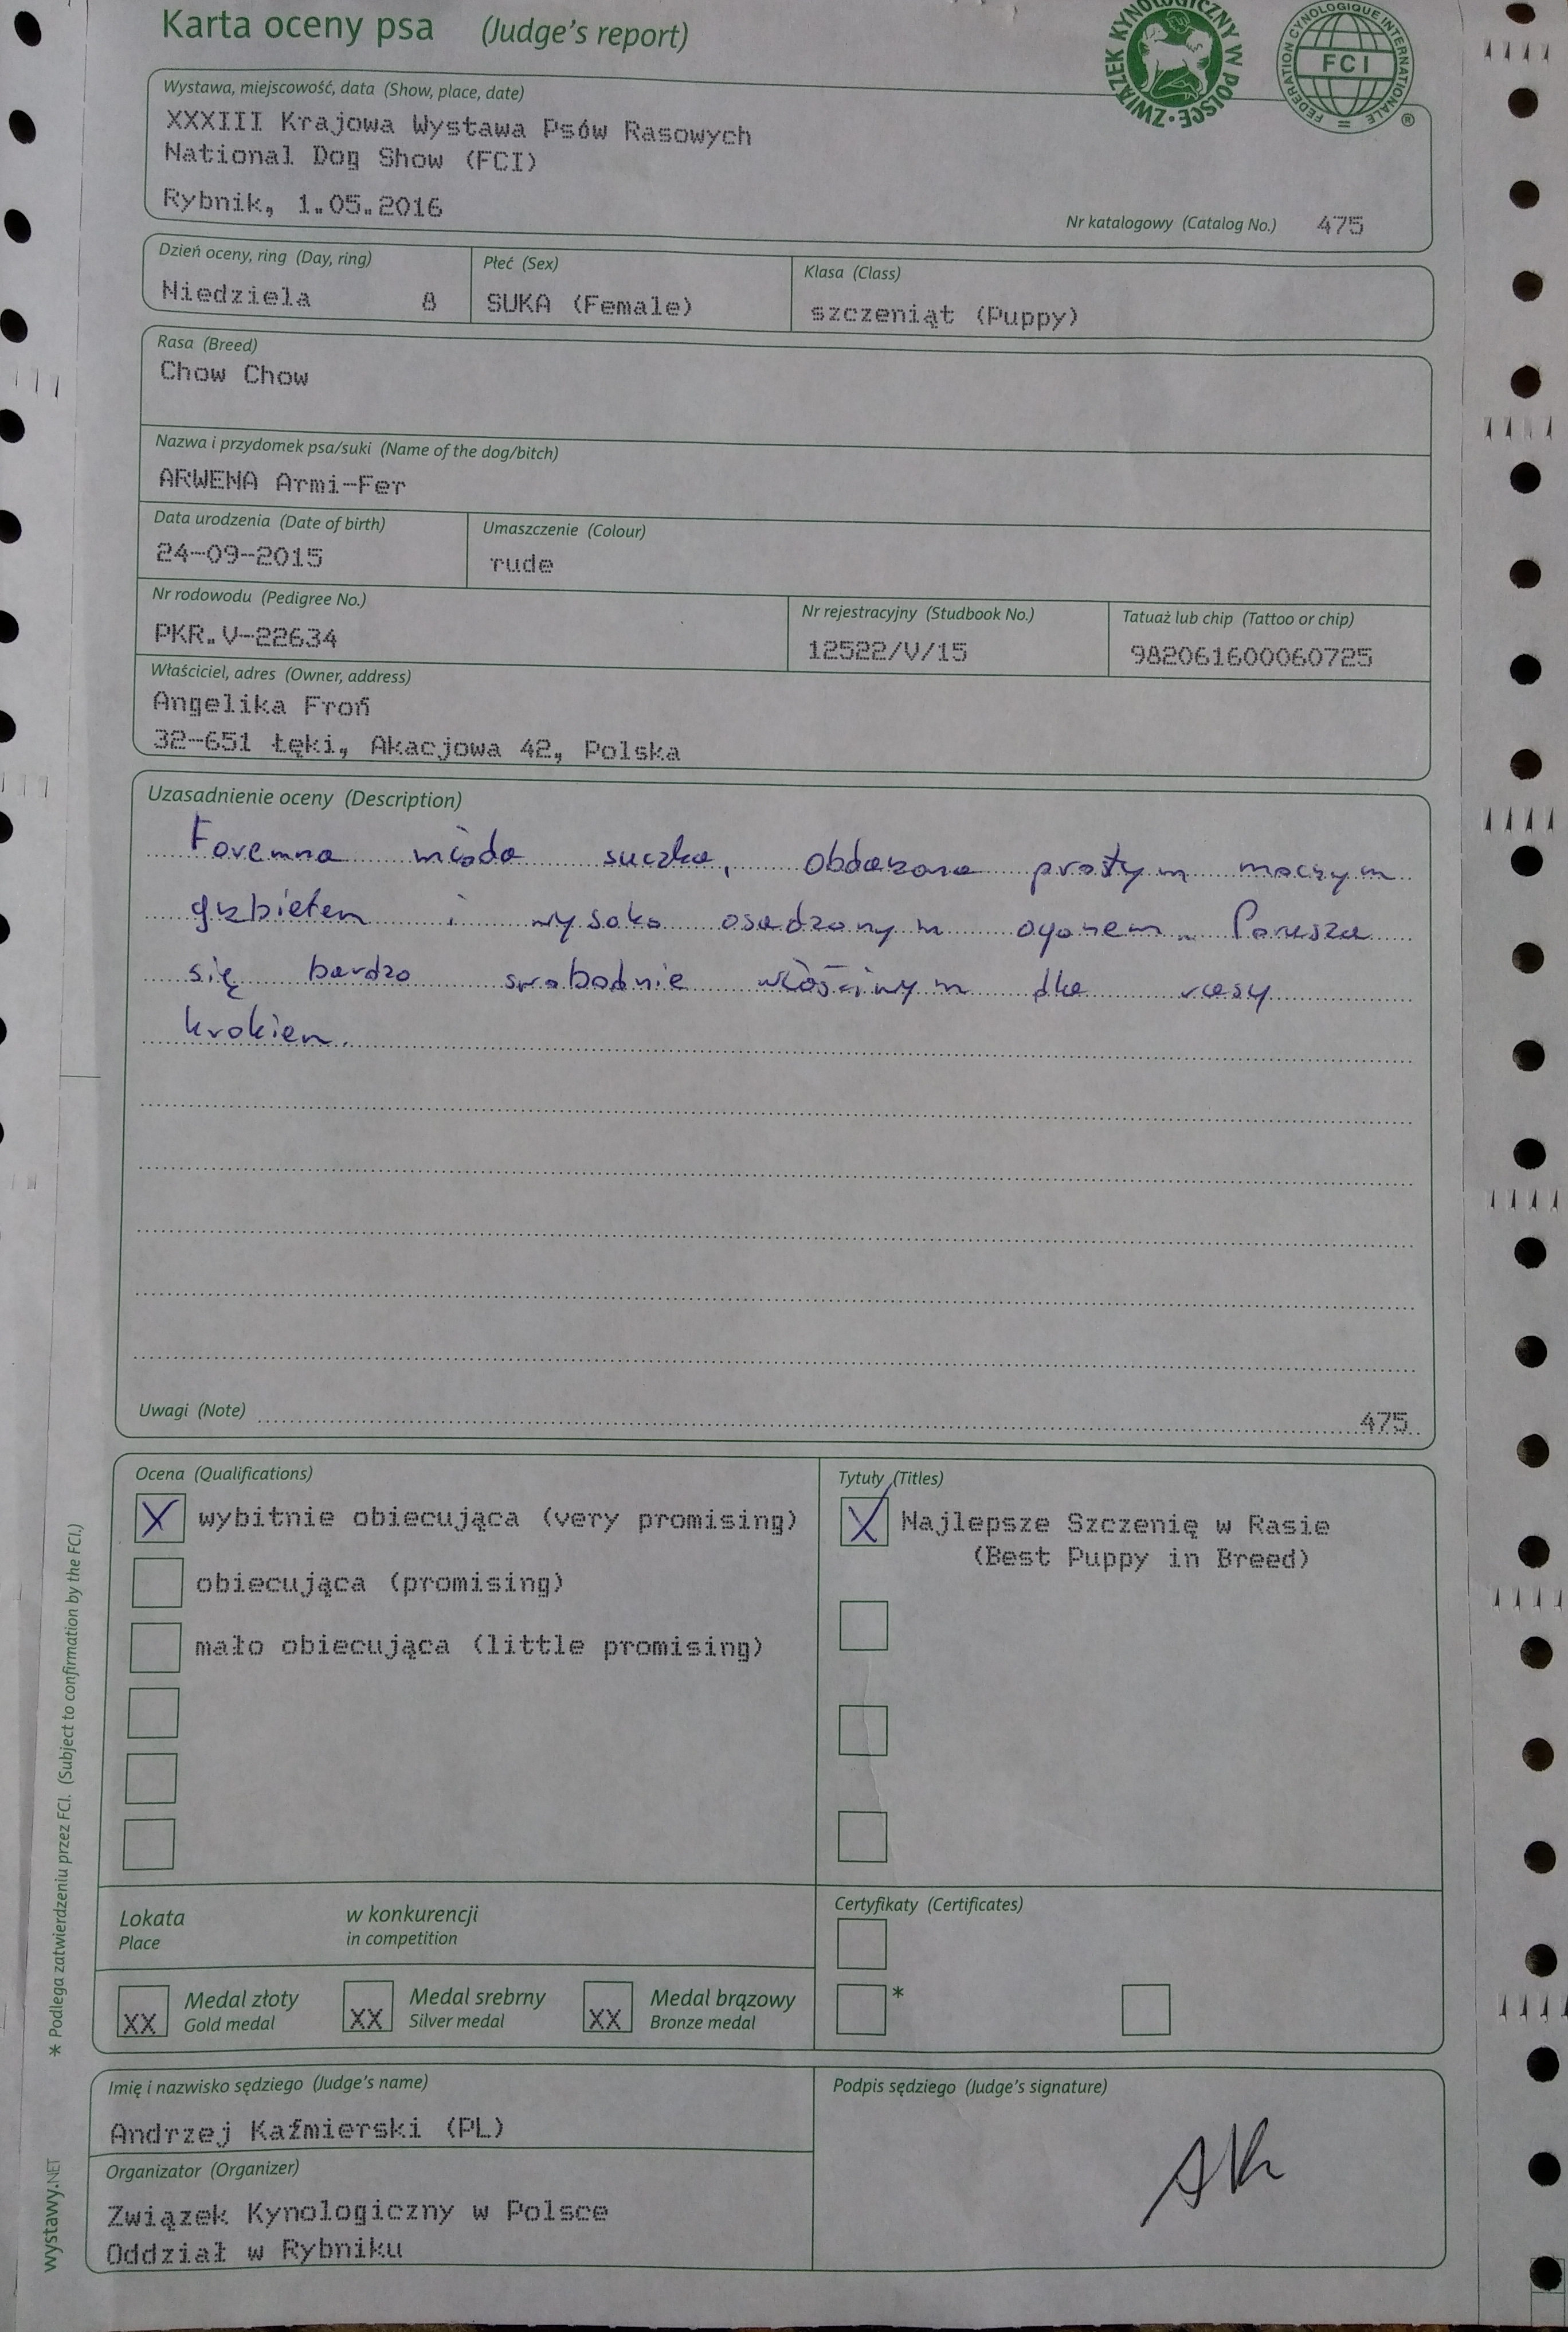 Karta oceny psa (Judge's report)
ZWIĄZEK KYNOLOGICZNY W POLSCE
FEDERATION CYNOLOGIQUE INTERNATIONALE
FCI
®
Wystawa, miejscowość, data (Show, place, date)
XXXIII Krajowa Wystawa Psów Rasowych
National Dog Show (FCI)
Rybnik, 1.05.2016
Nr katalogowy (Catalog No.) 475
Dzień oceny, ring (Day, ring)
Niedziela 8
Płeć (Sex)
SUKA (Female)
Klasa (Class)
szczeniąt (Puppy)
Rasa (Breed)
Chow Chow
Nazwa i przydomek psa/suki (Name of the dog/bitch)
ARWENA Armi-Fer
Data urodzenia (Date of birth)
24-09-2015
Umaszczenie (Colour)
rude
Nr rodowodu (Pedigree No.)
PKR.V-22634
Nr rejestracyjny (Studbook No.)
12522/V/15
Tatuaż lub chip (Tattoo or chip)
982061600060725
Właściciel, adres (Owner, address)
Angelika Froń
32-651 Łęki, Akacjowa 42, Polska
Uzasadnienie oceny (Description)
Foremna młoda suczka, obdarzona prostym mocnym
grzbietem i wysoko osadzonym ogonem. Porusza
się bardzo swobodnie właściwym dla rasy
krokiem.
Uwagi (Note) 475
Ocena (Qualifications)
X wybitnie obiecująca (very promising)
obiecująca (promising)
mało obiecująca (little promising)
Tytuły (Titles)
X Najlepsze Szczenię w Rasie
(Best Puppy in Breed)
Lokata w konkurencji
Place in competition
Certyfikaty (Certificates)
*
XX Medal złoty XX Medal srebrny XX Medal brązowy
Gold medal Silver medal Bronze medal
Imię i nazwisko sędziego (Judge's name)
Andrzej Kaźmierski (PL)
Organizator (Organizer)
Związek Kynologiczny w Polsce
Oddział w Rybniku
Podpis sędziego (Judge's signature)
AK
* Podlega zatwierdzeniu przez FCI. (Subject to confirmation by the FCI.)
wystawy.NET